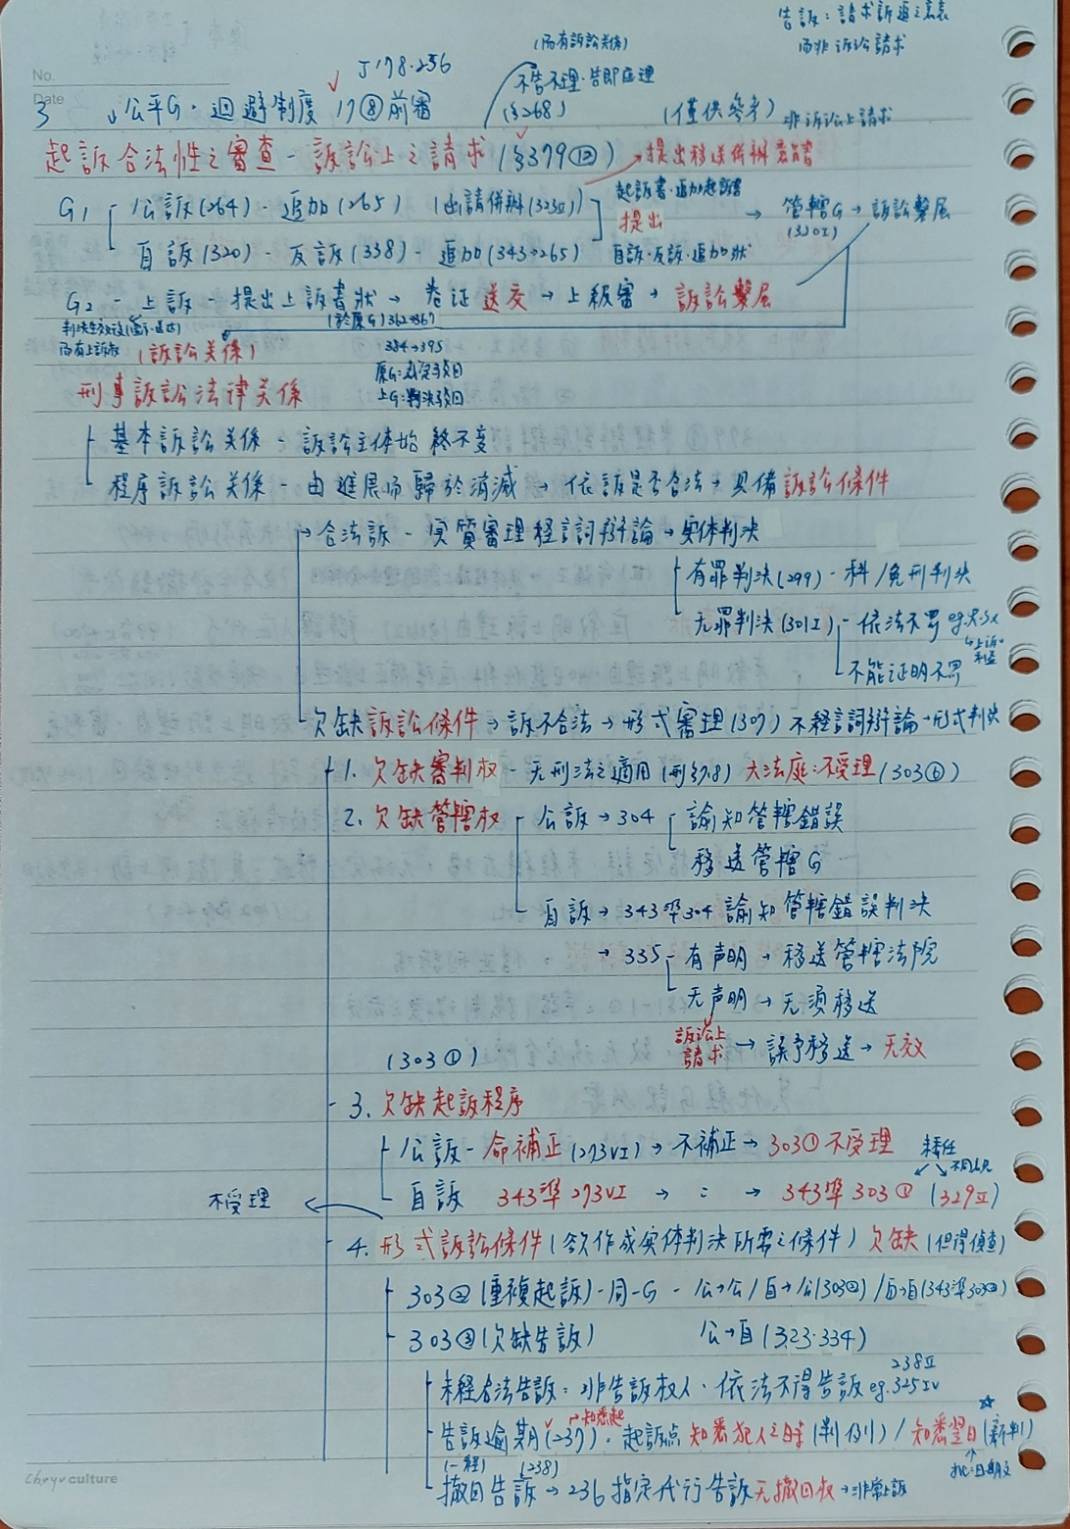 告訴：請求訴追之意表
而非訴訟請求
(而有訴訟关係)
J178.256
No.
Date
不告不理.告即应理
(§268)
3 公平G.迴避制度 17⑧前審
(僅供參考) 非訴訟上請求
起訴合法性之審查-訴訟上之請求(§379⑫) →提出移送併辦意旨書
G1 公訴(264)-追加(265) (函請併辦(323Ⅱ)) 起訴書.追加起訴書
提出 → 管轄G → 訴訟繫屬
自訴(320)-反訴(338)-追加(343→265) 自訴.反訴.追加狀
G2-上訴-提出上訴書狀→卷证送交→上級審→訴訟繫屬
(於原G)362→367
而有上訴权 (訴訟关係)
384→395
原G:裁定駁回
上G:判決駁回
刑事訴訟法律关係
基本訴訟关係-訴訟主体始終不变
程序訴訟关係-由進展而歸於消滅→依訴是否合法→具備訴訟條件
→合法訴-实質審理经言詞辯論→实体判決
有罪判決(299)-科/免刑判決
无罪判決(301Ⅰ) 依法不罰
上訴利益
不能证明不罪
欠缺訴訟條件→訴不合法→形式審理(307)不经言詞辯論→形式判決
1. 欠缺審判权-无刑法之適用(刑§7.8) 大法庭:不受理(303⑥)
2. 欠缺管轄权 公訴→304 諭知管轄錯誤
移送管轄G
自訴→343準304諭知管轄錯誤判決
→335 有声明→移送管轄法院
无声明→无須移送
訴訟上請求→誤予移送→无效
(303①)
3. 欠缺起訴程序
公訴-命補正(273Ⅵ)→不補正→303①不受理
不受理 自訴 343準273Ⅵ → : → 343準303① (329Ⅱ)
4. 形式訴訟條件(欲作成实体判決所需之條件)欠缺(但得偵查)
303②(重複起訴)-同一G-公→公/自→公(303②)/自→自(343準303②)
303③(欠缺告訴) 公→自(323.334)
238Ⅱ
未经合法告訴：非告訴权人.依法不得告訴eg.325Ⅳ
→知悉起
告訴逾期(237).起訴点 知悉犯人之時(判例)/知悉翌日(新判)
(238)
撤回告訴→236指定代行告訴无撤回权→非常上訴
Chryv culture